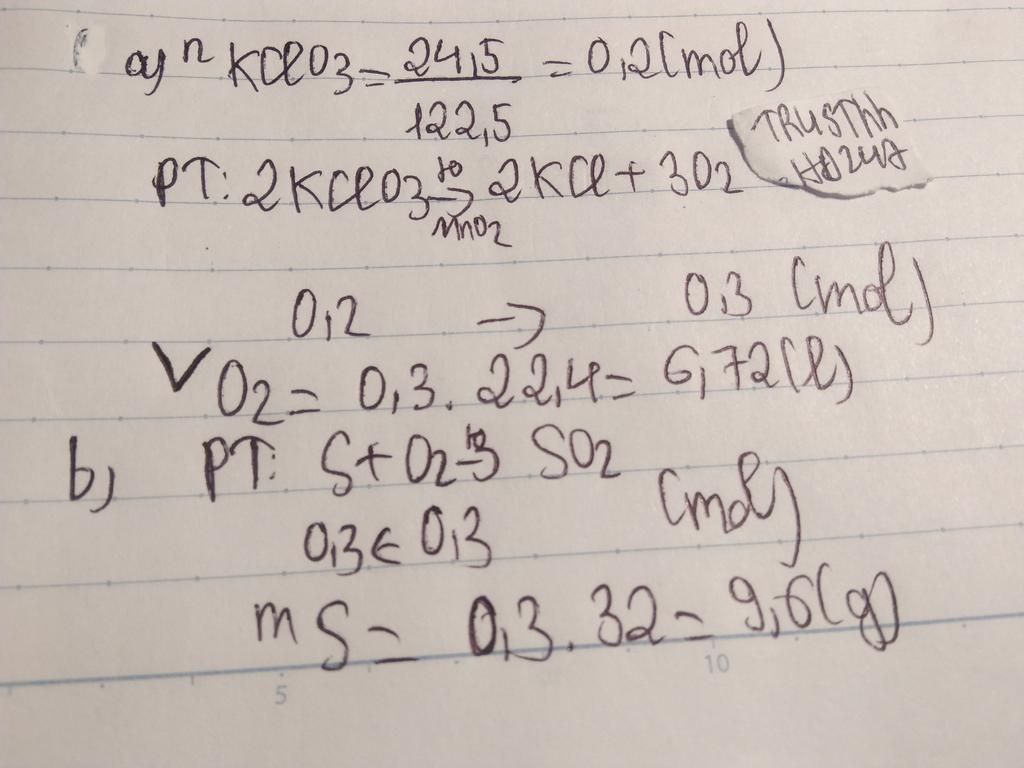 a) n KClO3 = 24,5 / 122,5 = 0,2 (mol)
TRUSTHh
PT: 2KClO3 t° → MnO2 2KCl + 3O2
0,2 → 0,3 (mol)
V O2 = 0,3 . 22,4 = 6,72 (l)
b) PT: S + O2 t° → SO2
0,3 ← 0,3 (mol)
m S = 0,3 . 32 = 9,6 (g)
5 10